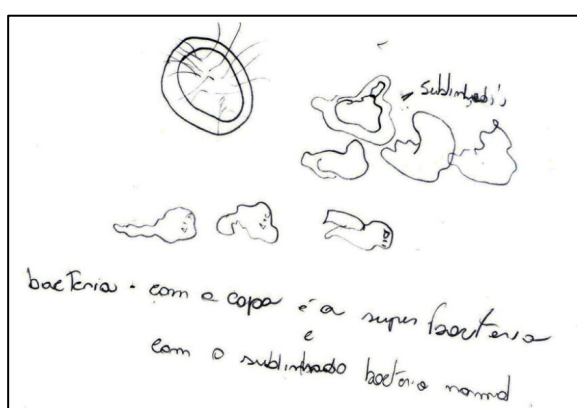 sublinhados
bacteria - com a capa é a super bacteria
e
com o sublinhado bacteria normal